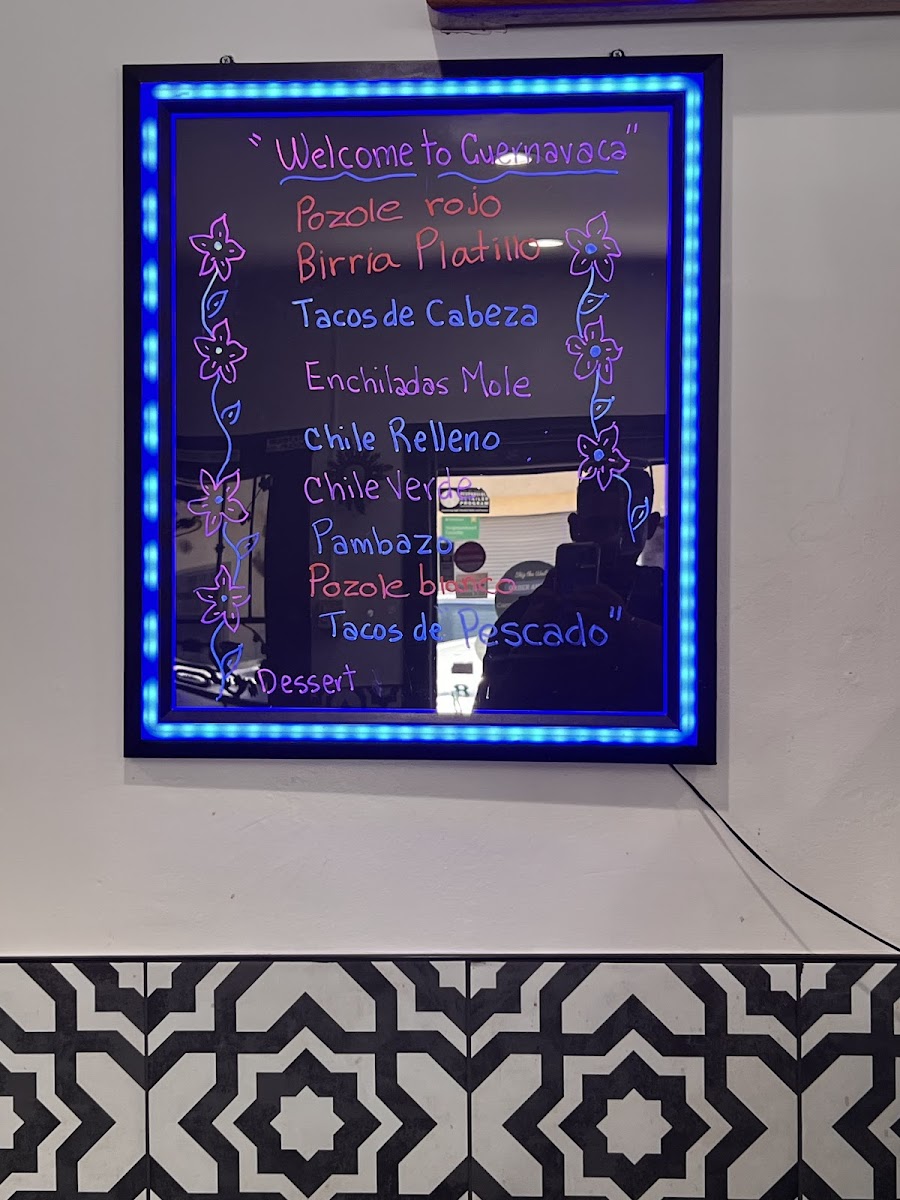 "Welcome to Cuernavaca"
Pozole rojo
Birria Platillo
Tacos de Cabeza
Enchiladas Mole
Chile Relleno
Chile Verde
Pambazo
Pozole blanco
Tacos de Pescado"
Dessert